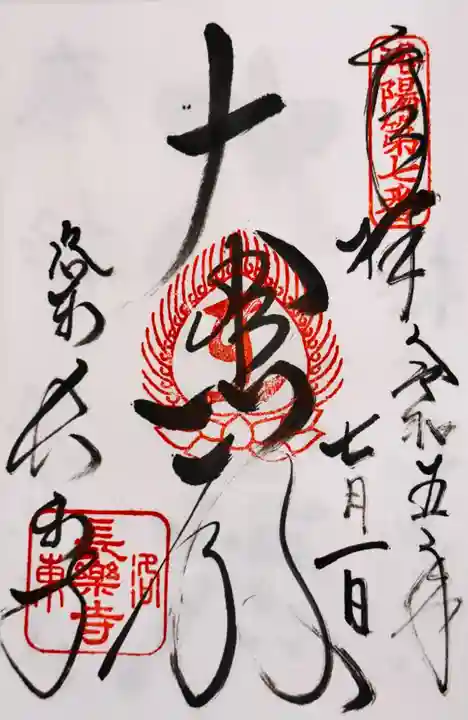 洛陽第七番
奉拝
令和五年
七月一日
十一面
洛東
長楽寺
洛東
長樂寺